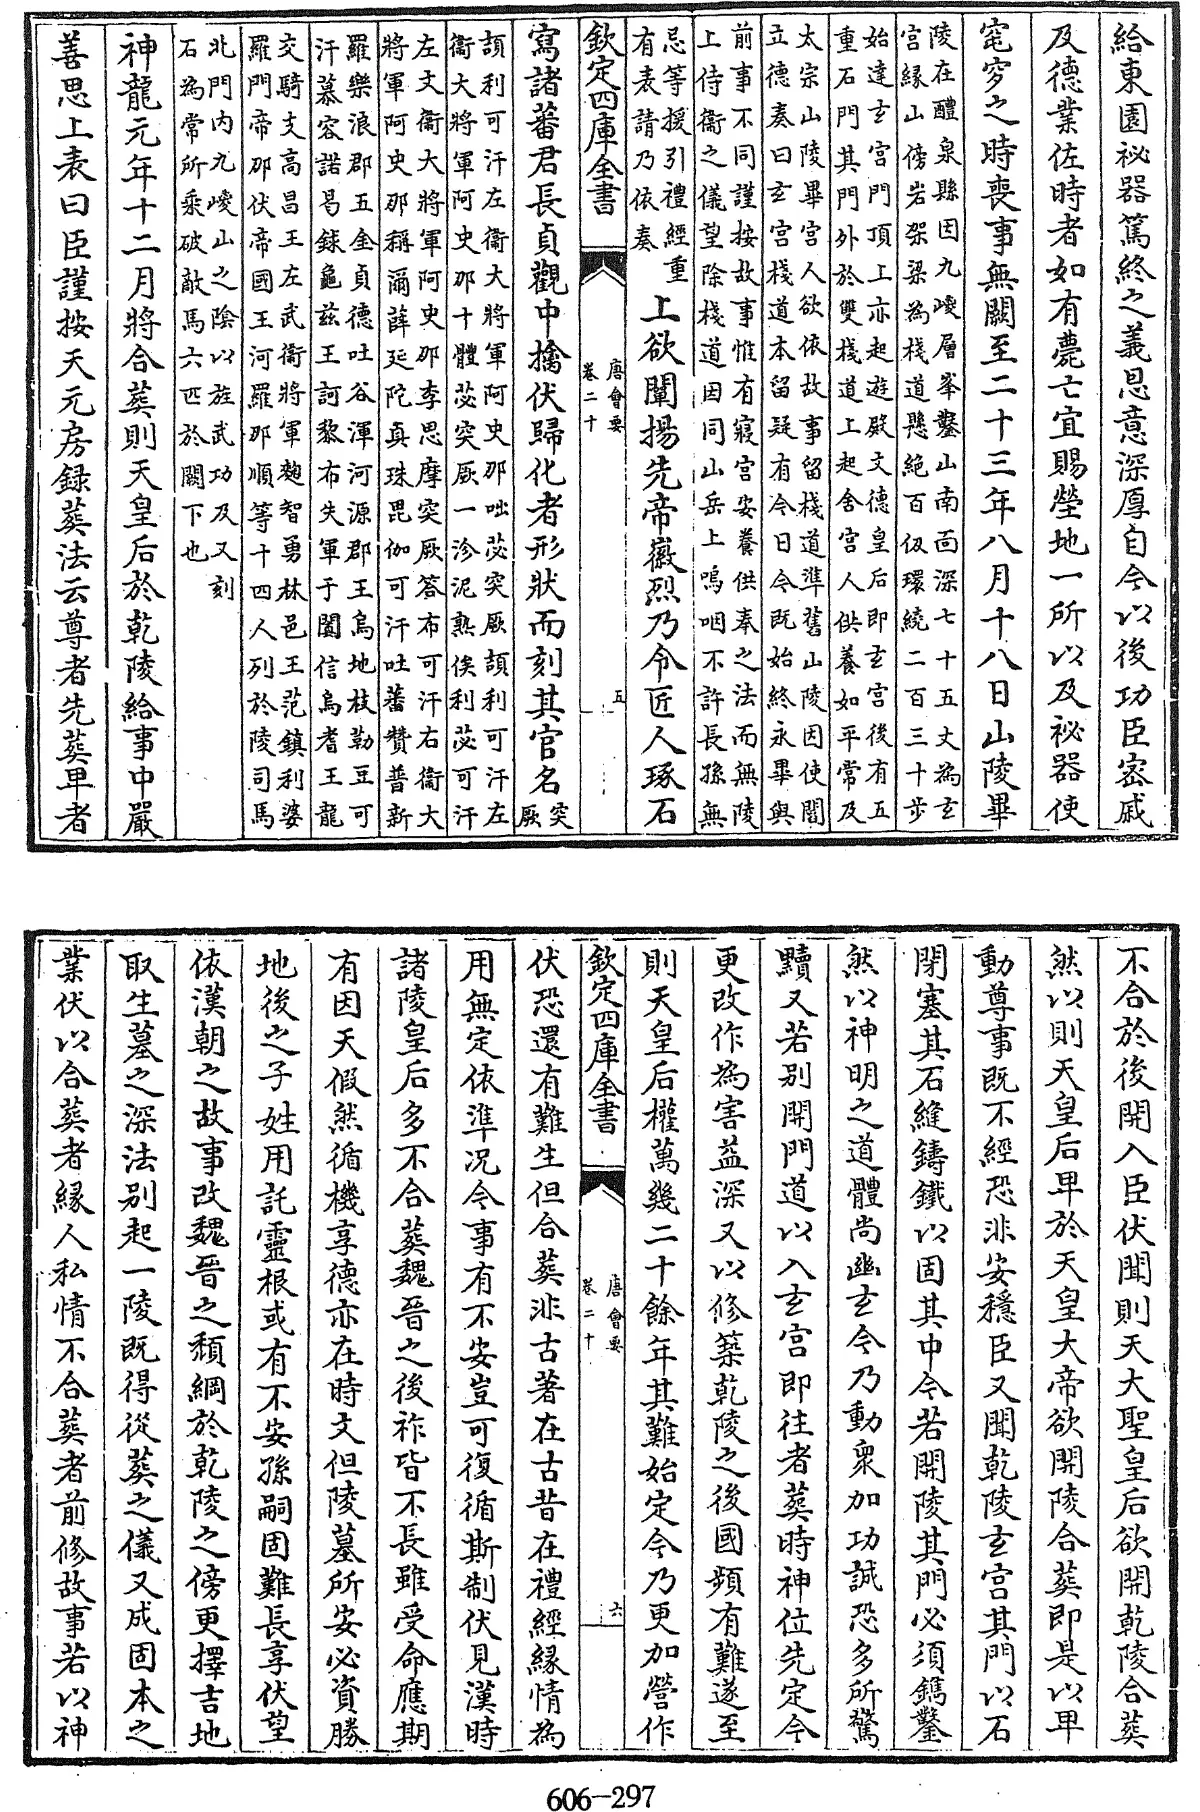 給東園祕器篤終之義恩意深厚自今以後功臣密戚
及德業佐時者如有薨亡宜賜塋地一所以及祕器使
窀穸之時喪事無闕至二十三年八月十八日山陵畢
陵在醴泉縣因九嵕層峯鑿山南面深七十五丈為玄
宮縁山傍岩架梁為棧道懸絶百仭環繞二百三十步
始達玄宮門頂上亦起遊殿文德皇后即玄宮後有五
重石門其門外於雙棧道上起舍宮人供養如平常及
太宗山陵畢宮人欲依故事留棧道準舊山陵因使閻
立德奏曰玄宮棧道本留疑有今日今既始終永畢與
前事不同謹按故事惟有寢宮安養供奉之法而無陵
上侍衛之儀望除棧道因同山岳上嗚咽不許長孫無
忌等援引禮經重
有表請乃依奏
上欲闡揚先帝徽烈乃令匠人琢石
欽定四庫全書
唐會要
卷二十
五
寫諸蕃君長貞觀中擒伏歸化者形狀而刻其官名
突
厥
頡利可汗左衛大將軍阿史那咄苾突厥頡利可汗左
衛大將軍阿史那十體苾突厥一沴泥熟俟利苾可汗
左文衛大將軍阿史那李思摩突厥答布可汗右衛大
將軍阿史那稱爾薛延陀真珠毘伽可汗吐蕃贊普新
羅樂浪郡五金貞德吐谷渾河源郡王烏地枝勒豆可
汗慕容諾曷鉢龜兹王訶黎布失軍于闐信烏耆王龍
交騎支高昌王左武衛將軍麴智勇林邑王范鎮利婆
羅門帝那伏帝國王河羅那順等十四人列於陵司馬
北門内九嵕山之陰以旌武功及又刻
石為常所乘破敵馬六匹於闕下也
神龍元年十二月將合葬則天皇后於乾陵給事中嚴
善思上表曰臣謹按天元房録葬法云尊者先葬卑者
不合於後開入臣伏聞則天大聖皇后欲開乾陵合葬
然以則天皇后卑於天皇大帝欲開陵合葬即是以卑
動尊事既不經恐非安穩臣又聞乾陵玄宮其門以石
閉塞其石縫鑄鐵以固其中今若開陵其門必須鐫鑿
然以神明之道體尚幽玄今乃動衆加功誠恐多所驚
黷又若别開門道以入玄宮即往者葬時神位先定今
更改作為害益深又以修築乾陵之後國頻有難遂至
則天皇后權萬幾二十餘年其難始定今乃更加營作
欽定四庫全書
唐會要
卷二十
六
伏恐還有難生但合葬非古著在古昔在禮經緣情為
用無定依準况今事有不安豈可復循斯制伏見漢時
諸陵皇后多不合葬魏晉之後祚皆不長雖受命應期
有因天假然循機享德亦在時文但陵墓所安必資勝
地後之子姓用託靈根或有不安孫嗣固難長享伏望
依漢朝之故事改魏晉之頹綱於乾陵之傍更擇吉地
取生墓之深法别起一陵既得從葬之儀又成固本之
業伏以合葬者緣人私情不合葬者前修故事若以神
606-297